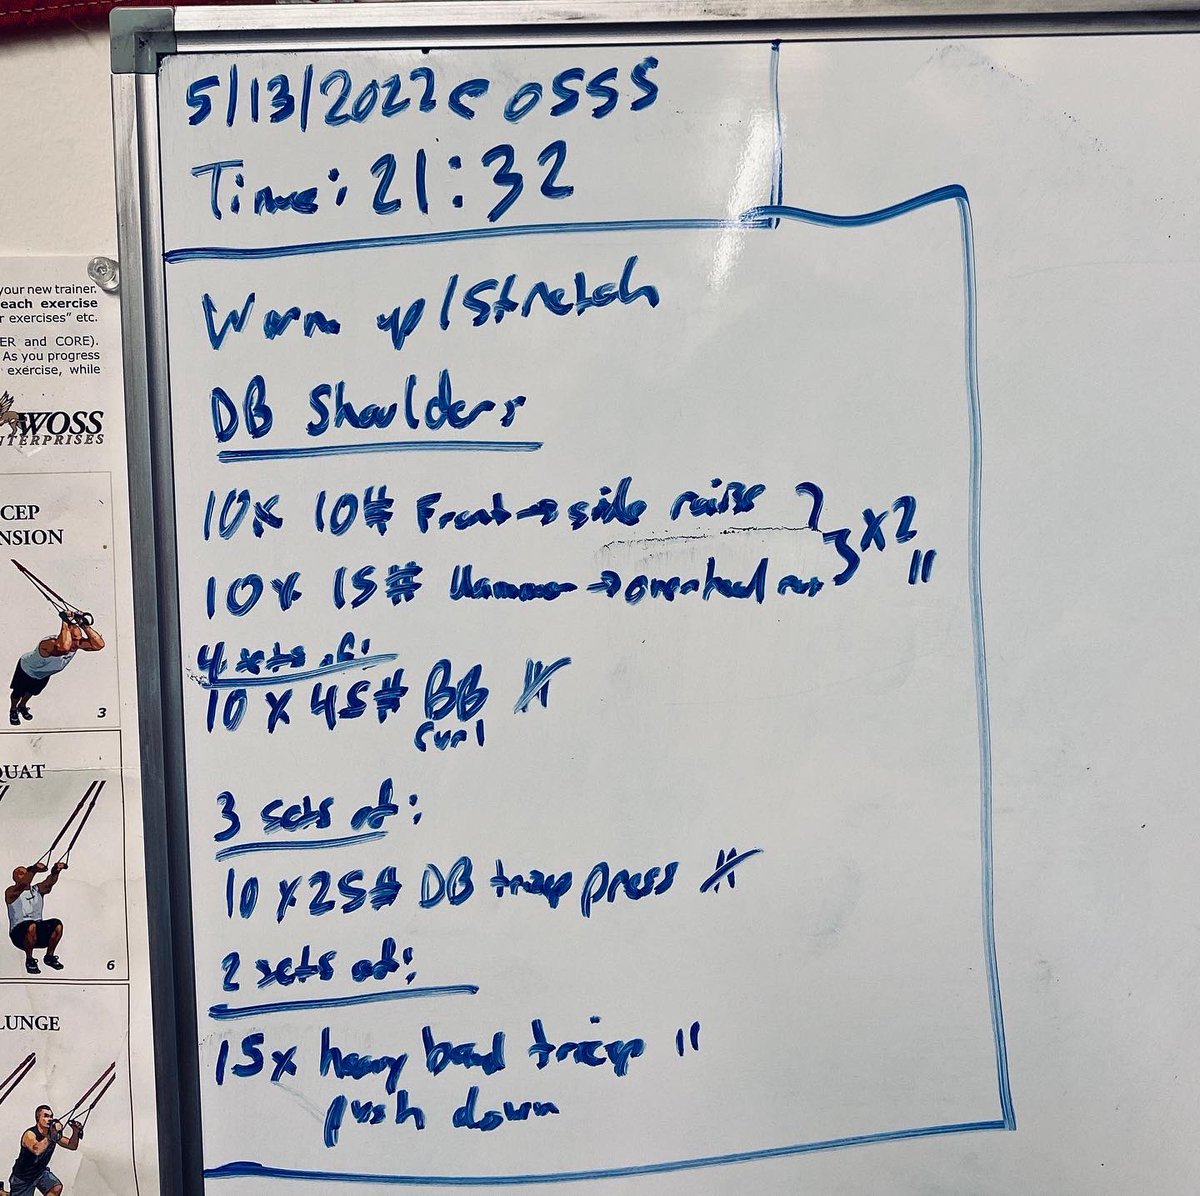 5/13/2022 @ 0555
Time: 21:32
Warm up/Stretch
DB Shoulders
10x 10# Front → side raise
10x 15# Hammer → overhead
x2 ||
4 sets of:
10 x 45# BB
Curl
3 sets of:
10 x 25# DB tricep press
2 sets of:
15x heavy band tricep ||
push down
your new trainer.
each exercise
r exercises" etc.
ER and CORE).
As you progress
exercise, while
WOSS
NTERPRISES
CEP
NSION
3
QUAT
6
LUNGE